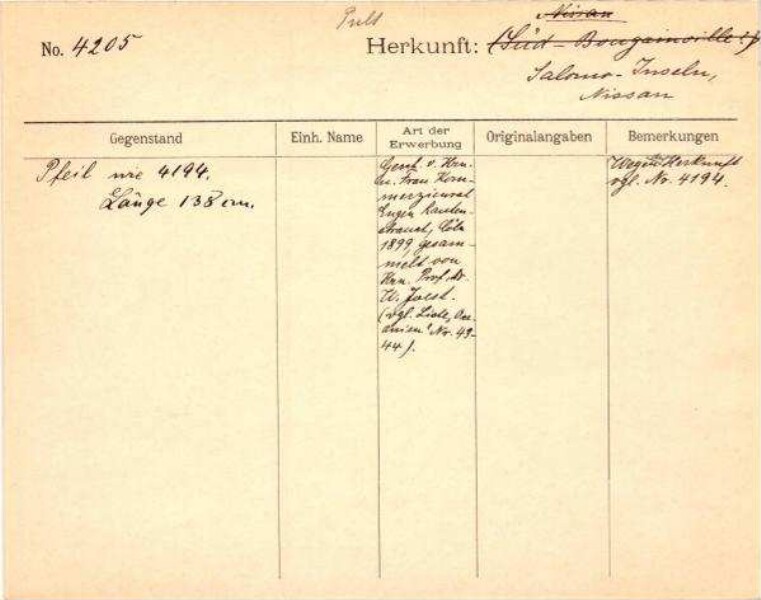 Pult
No. 4205
Herkunft: Nissan
(Süd-Bougainville?)
Salomo-Inseln,
Nissan
Gegenstand
Einh. Name
Art der
Erwerbung
Originalangaben
Bemerkungen
Pfeil wie 4194.
Länge 138 cm.
Gesch. v. Hrn.
u. Frau Kom-
merzienrat
Eugen Rauten-
strauch, Cöln
1899, gesam-
melt von
Hrn. Prof. Dr.
W. Joest.
(vgl. Liste, Oce-
anien" Nr. 43-
44).
Wegen Herkunft
vgl. Nr. 4194.